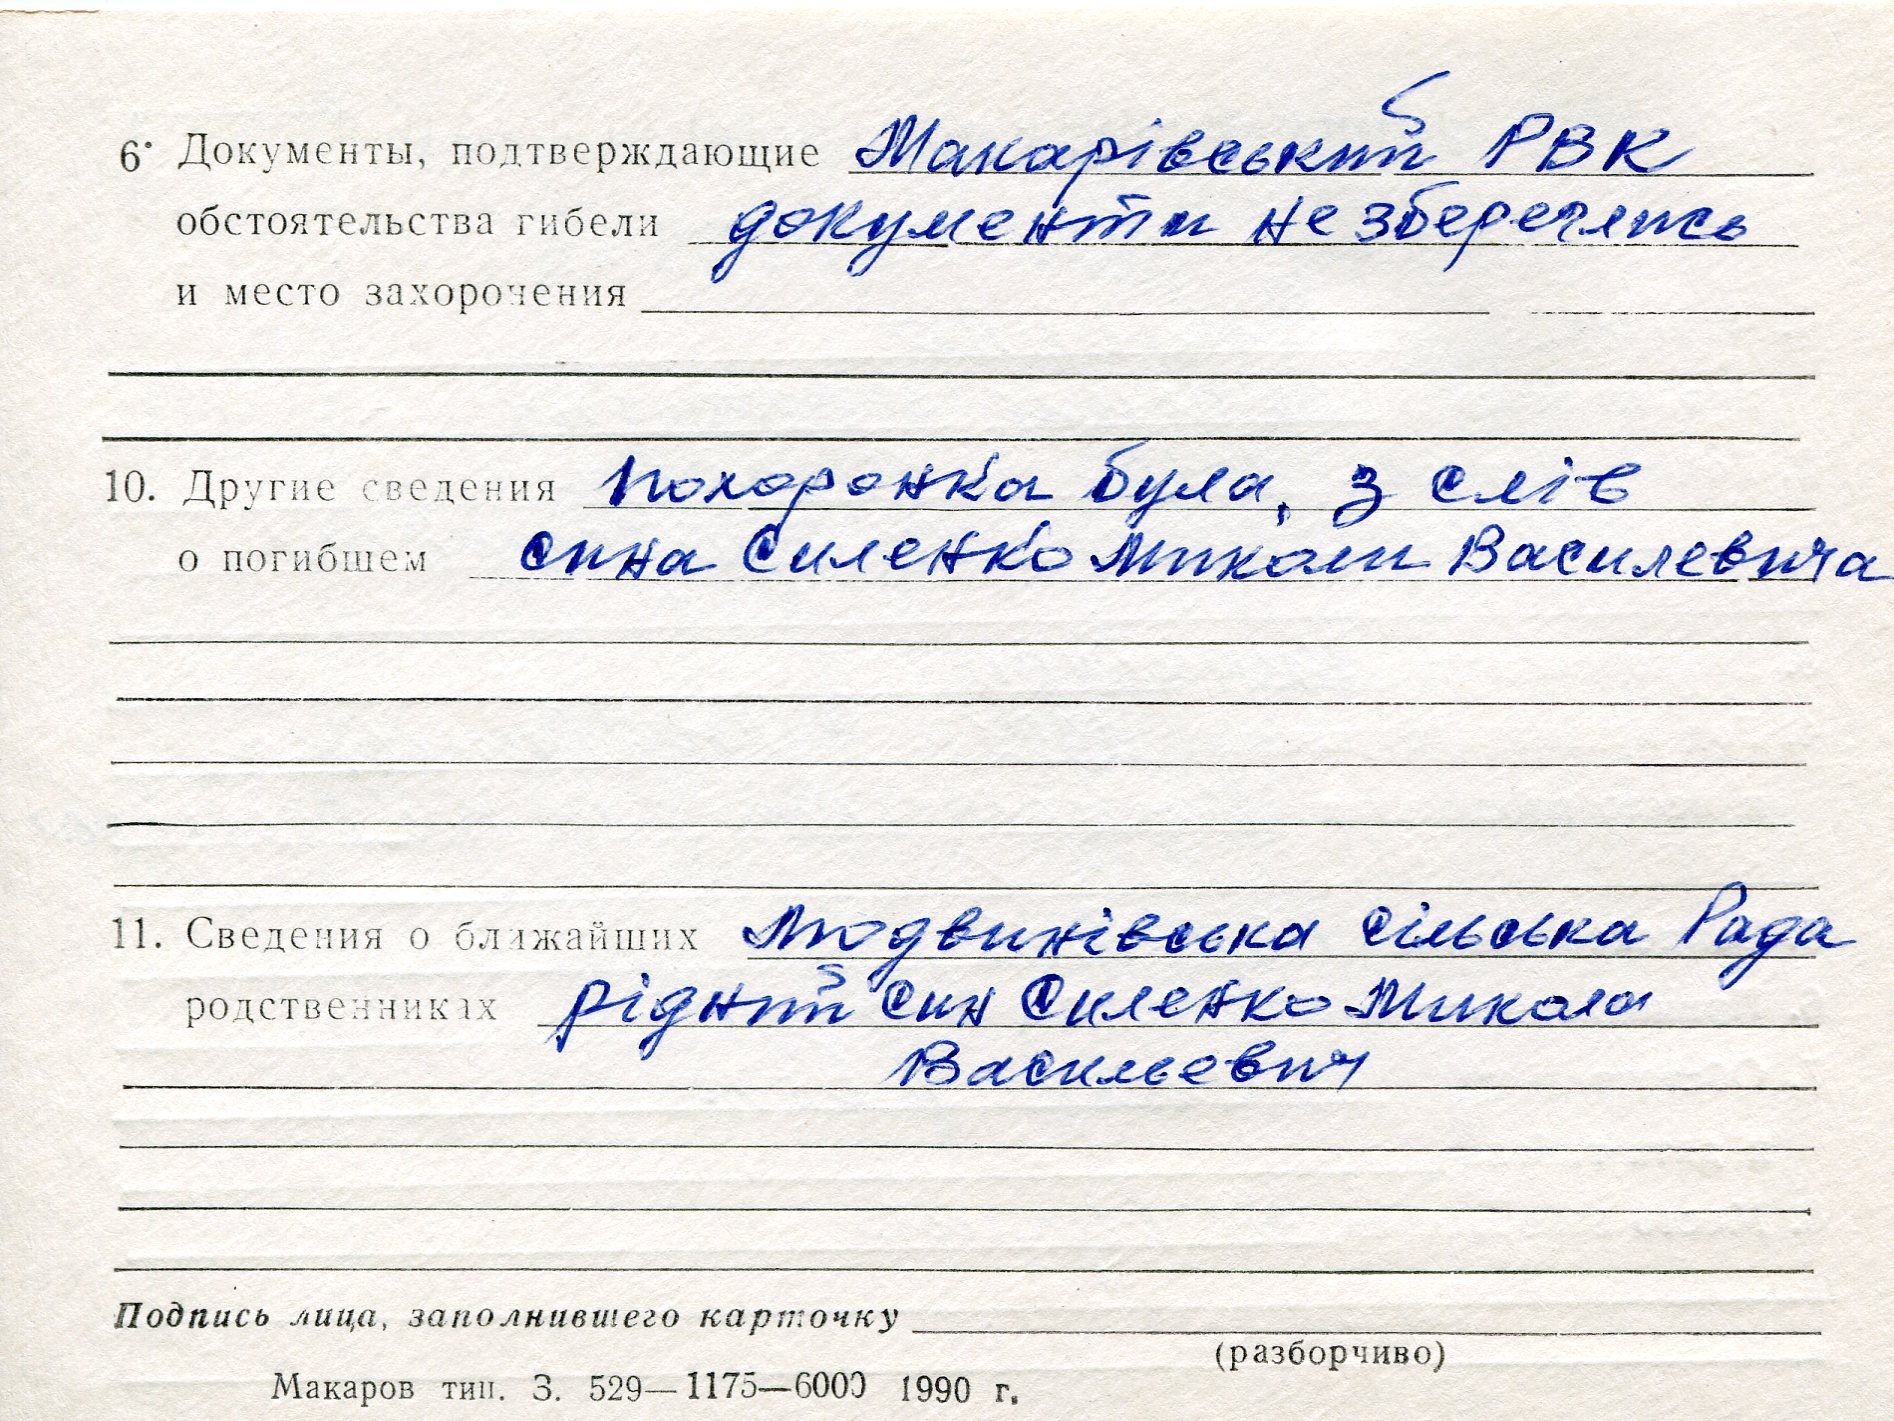 6. Документы, подтверждающие Макарівський РВК
обстоятельства гибели документи не збереглись
и место захоронения
10. Другие сведения похоронка була, з слів
о погибшем сина Силенко Миколи Василевича
11. Сведения о ближайших Людвинівська сільська Рада
родственниках рідний син Силенко Микола
Васильевич
Подпись лица, заполнившего карточку
(разборчиво)
Макаров тип. З. 529—1175—6000 1990 г.